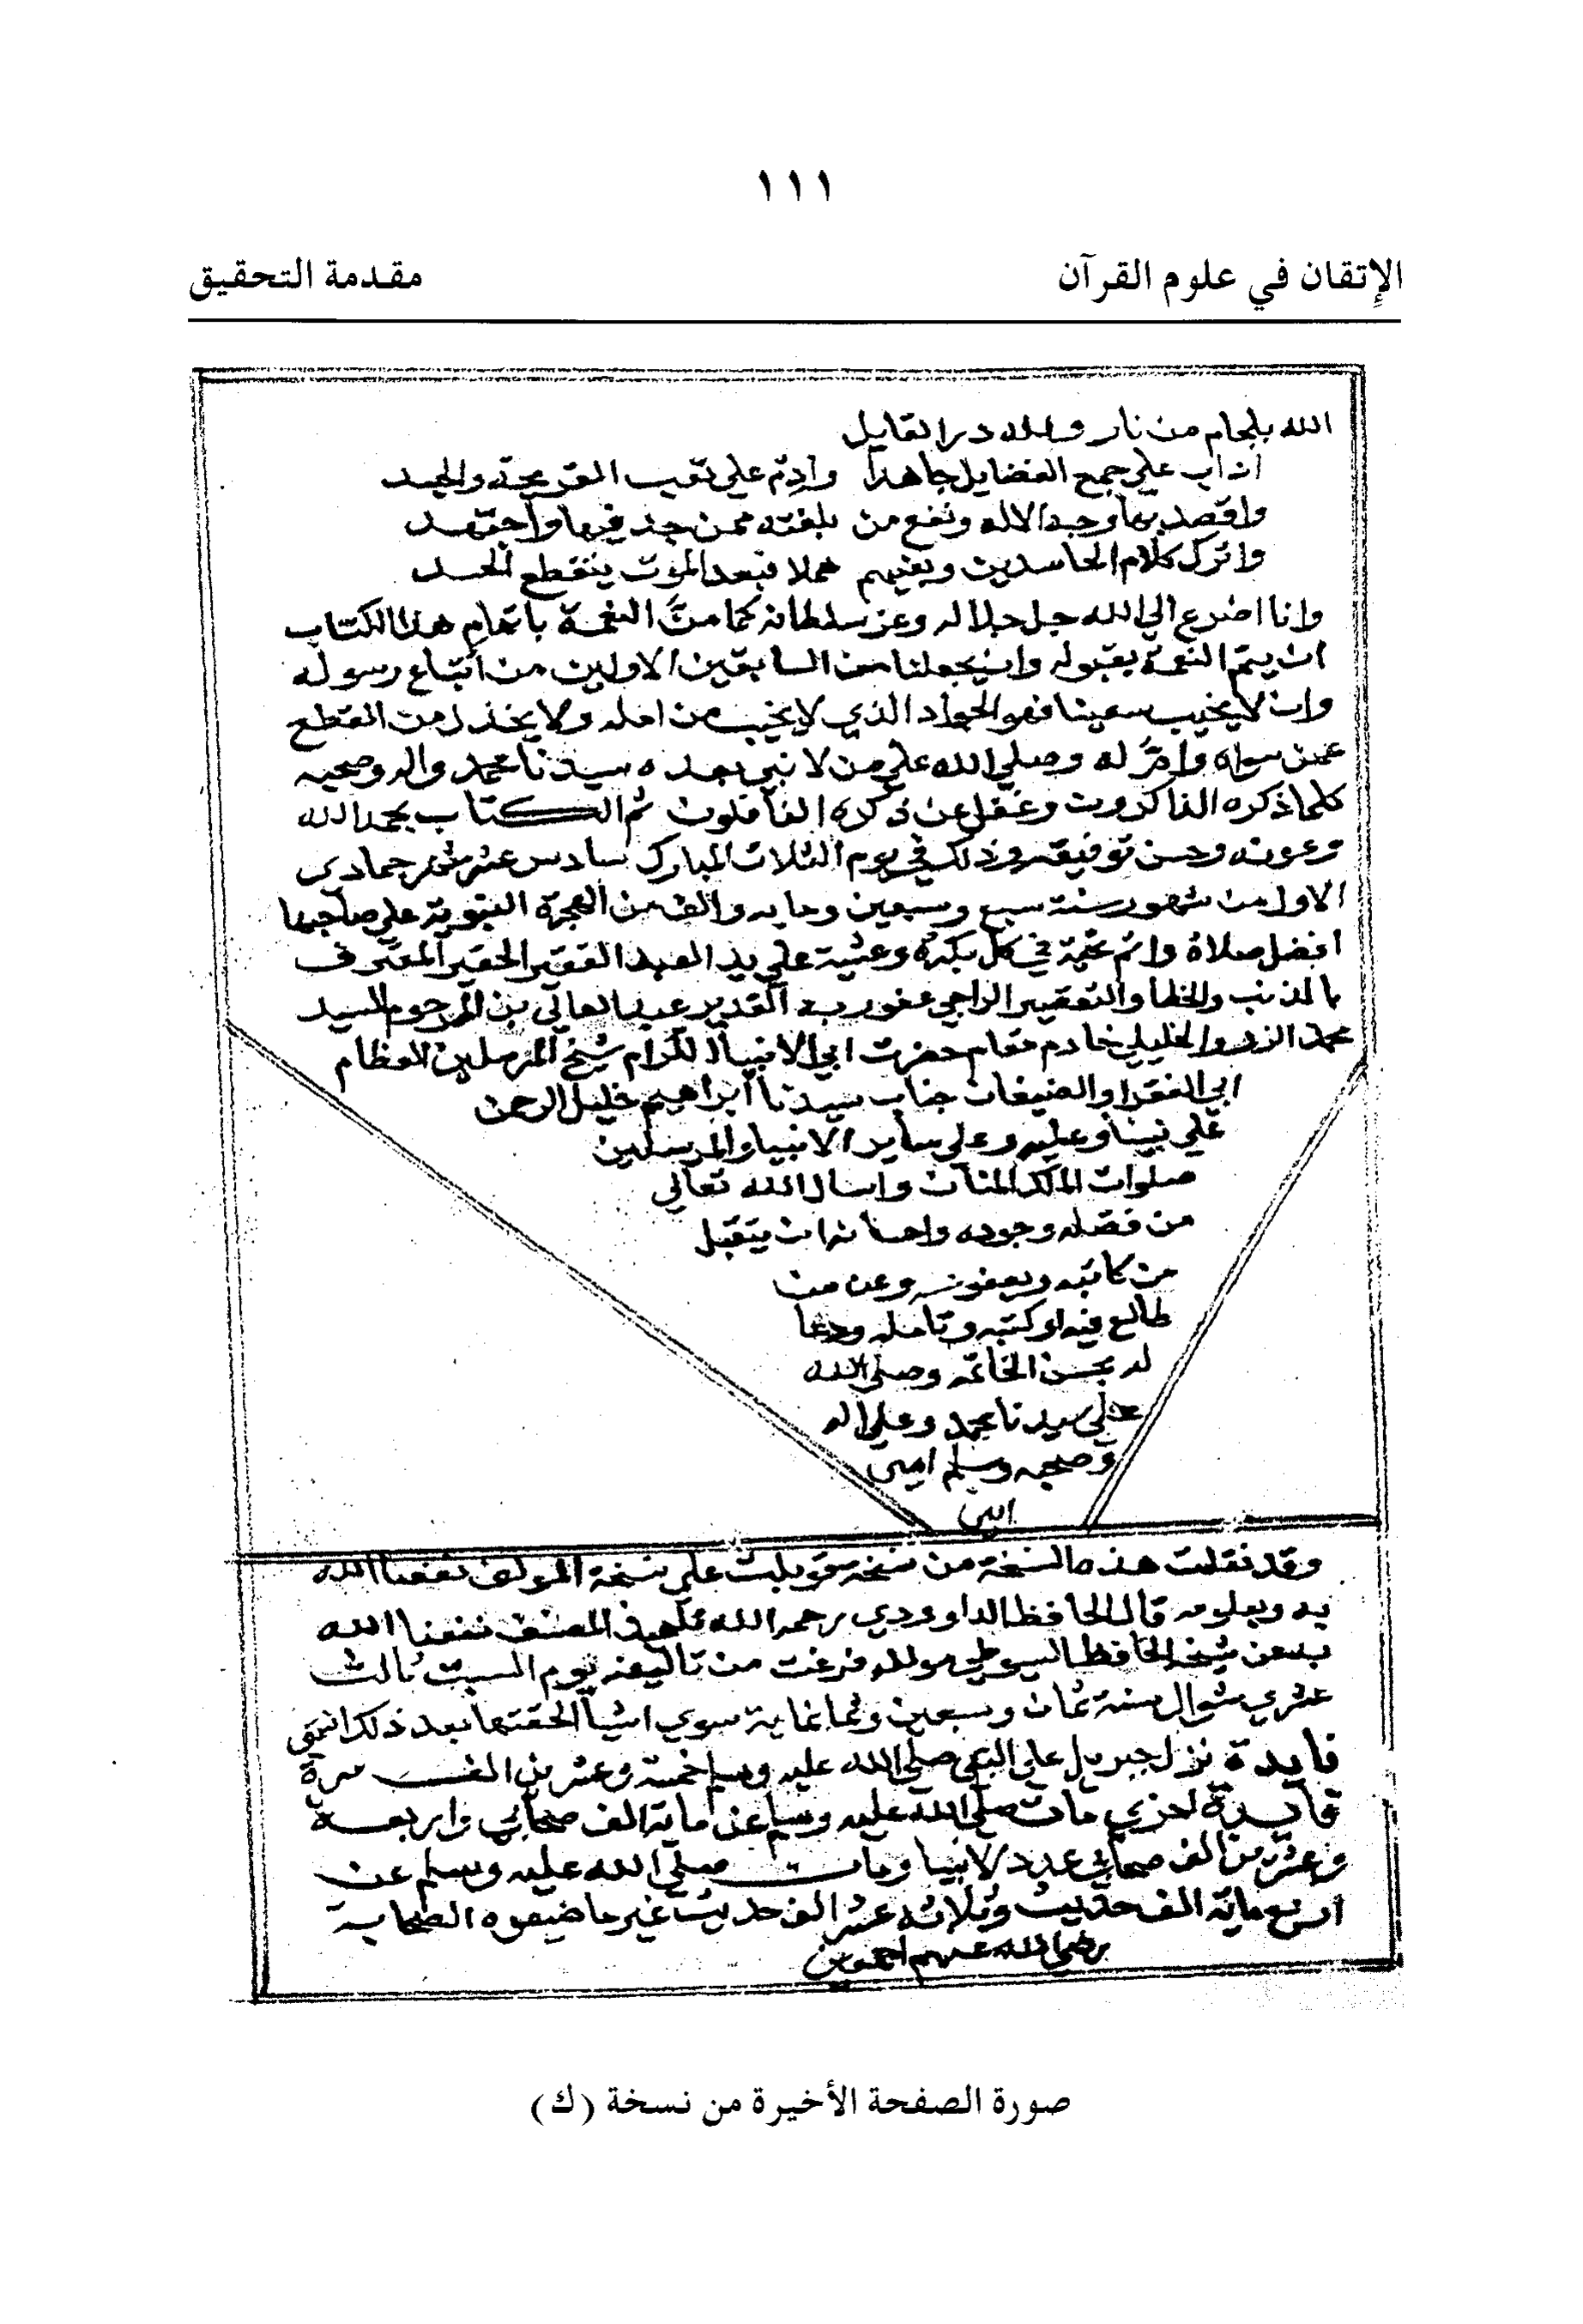 ١١١
الإتقان في علوم القرآن
مقدمة التحقيق
الله بلجام من نار ولله در القايل
اداب علي جمع الفضايل جاهدا وادم علي تعب القريحة والجسد
واقصد بها وجه الاله ونفع من بلغته ممن جد فيها واجتهد
واترك كلام الحاسدين وبغيهم هملا فبعد الموت ينقطع الحسد
وانا اضرع الي الله جل جلاله وعز سلطانه كما منَّ النعمة باتمام هذا الكتاب
ان يتم النعمة بقبوله وان يجعلنا من السابقين الاولين من اتباع رسوله
وان لا يخيب سعينا فهو الجواد الذي لا يخيب من امله ولا يخذل من انقطع
عمن سواه وامّ له وصلي الله علي من لا نبي بعده سيدنا محمد واله وصحبه
كلما ذكره الذاكرون وغفل عن ذكره الغافلون تم الكتاب بحمد الله
وعونه وحسن توفيقه وذلك في يوم الثلاث المبارك سادس عشر جمادي
الاول من شهور سنة سبع وسبعين ومايه والف من الهجرة النبوية علي صاحبها
افضل صلاة واتم تحية في كل بكرة وعشية علي يد العبد الفقير الحقير المعترف
بالذنب والخطا والتقصير الراجي عفو ربه القدير عبد العالي بن المرحوم السيد
محمد الخليلي خادم مقام حضرت ابي الانبيا الكرام شيخ المرسلين العظام
ابي الفقرا والضيفان جناب سيدنا ابراهيم خليل الرحمن
علي نبينا وعليه وعلي ساير الانبيا والمرسلين
صلوات الملك المنان واسال الله تعالي
من فضله وجوده واحسانه ان يتقبل
من كاتبه ويعفو عنه وعن من
طالع فيه او كتبه وتامله ودعا
له بحسن الخاتمه وصلي الله
علي سيدنا محمد وعلي اله
وصحبه وسلم امين
امين
وقد نقلت هذه النسخة من نسخة قوبلت علي نسخة المولف نفعنا الله
به وبعلومه قال الحافظ الداوودي رحمه الله تلميذ المصنف نفعنا الله
به عن شيخه الحافظ السيوطي مولفه فرغت من تاليفه يوم السبت ثالث
عشري شوال سنة ثمان وسبعين وثمانماية سوي اشيا الحقتها بعد ذلك انتهي
فايدة نزل جبريل علي النبي صلي الله عليه وسلم خمسة وعشرين الف مرة
فايدة اخري مات صلي الله عليه وسلم عن ماية الف صحابي واربعة
وعشرين الف صحابي عدد الانبيا ومات صلي الله عليه وسلم عن
اربع ماية الف حديث وثلاثه عشر الف حديث غير ما ضيعوه الصحابة
رضي الله عنهم اجمعين
صورة الصفحة الأخيرة من نسخة (ك)